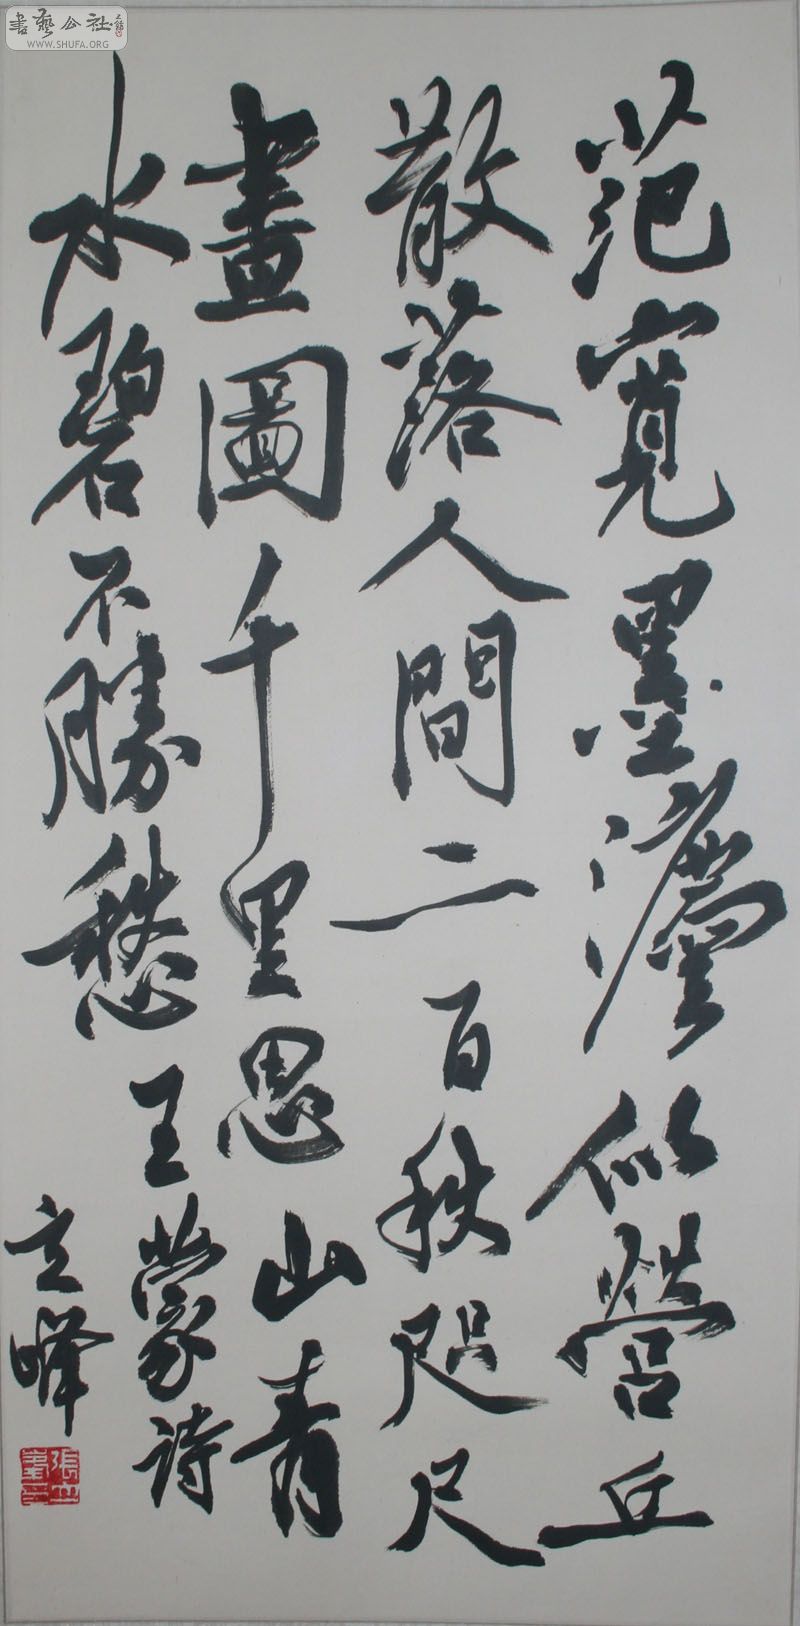 書藝公社
WWW.SHUFA.ORG
范寬墨瀋似營丘
散落人間二百秩咫尺
畫圖千里思山青
水碧不勝愁王蒙詩
立峰